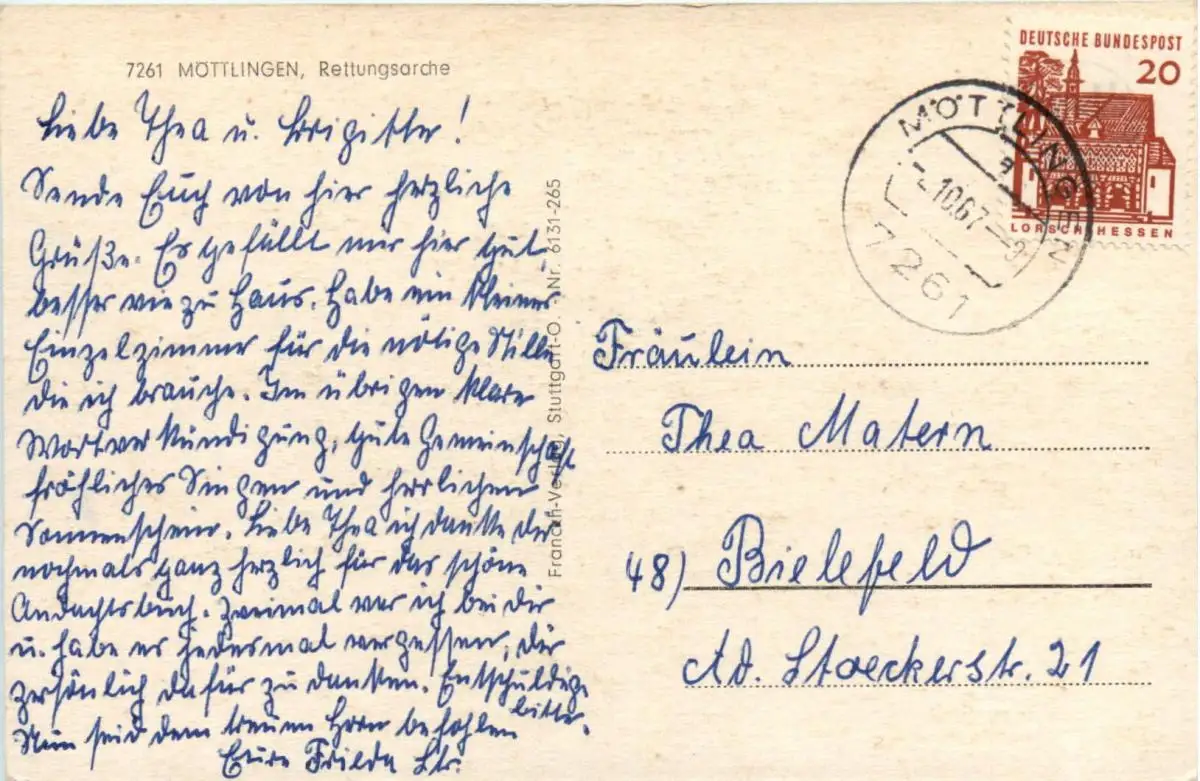 7261 MÖTTLINGEN, Rettungsarche
Liebe Thea u. Brigitte!
Sende Euch von hier herzliche
Grüße. Es gefällt mir hier gut,
besser wie zu Haus. Habe ein kleines
Einzelzimmer für die nötige Stille
die ich brauche. Im übrigen klare
Wortverkündigung, gute Gemeinschaft
fröhliches Singen und herrlichen
Sonnenschein. Liebe Thea ich danke dir
nochmals ganz herzlich für das schöne
Andachtsbuch. Zweimal war ich bei Dir
u. habe es jedesmal vergessen, Dir
persönlich dafür zu danken. Entschuldige
bitte.
Nun seid dem treuen Herrn befohlen
Eure Frieda Str.
Franckh-Verlag, Stuttgart-O. Nr. 6131-265
DEUTSCHE BUNDESPOST
20
LORSCH HESSEN
MÖTTLINGEN
10.67
7261
Fräulein
Thea Matern
48) Bielefeld
Ad. Stoeckerstr. 21